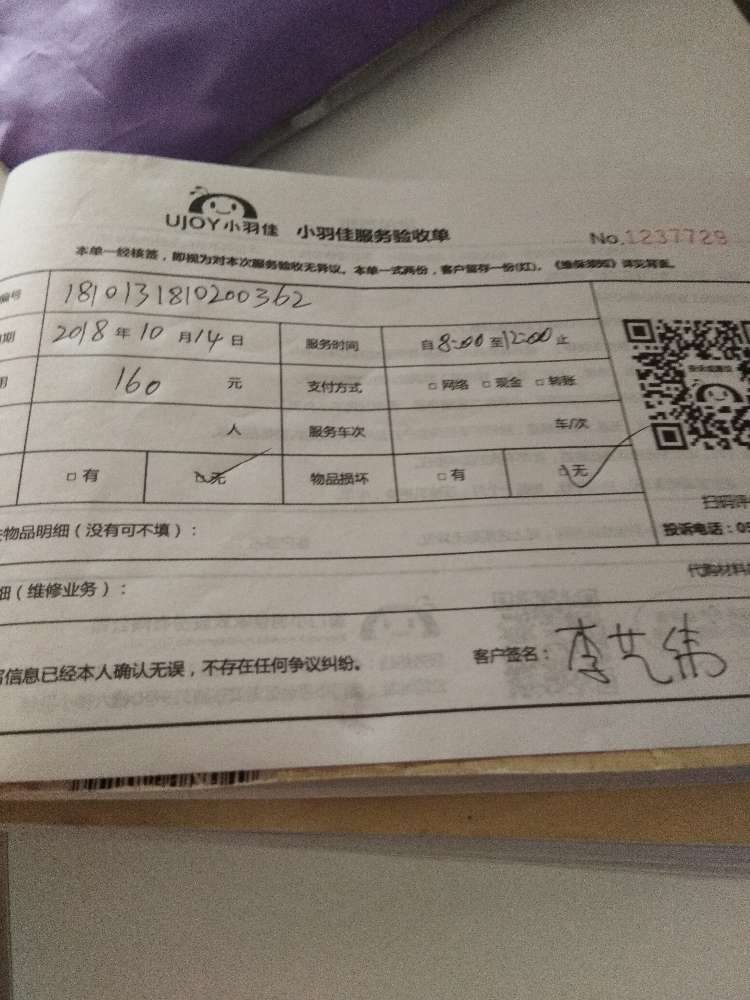 UJOY小羽佳 小羽佳服务验收单 No.1237729
本单一经核签，即视为对本次服务验收无异议。本单一式两份，客户留存一份(红)，《维保须知》详见背面。
编号 181013181020362
期 2018年10月14日 服务时间 自8:00至12:00止
用 160 元 支付方式 □网络 □现金 □转账
人 服务车次 车/次
□有 □无 物品损坏 □有 □无
扫码评
物品明细（没有可不填）： 投诉电话：05
细（维修业务）： 代购材料
写信息已经本人确认无误，不存在任何争议纠纷。 客户签名：李艺伟